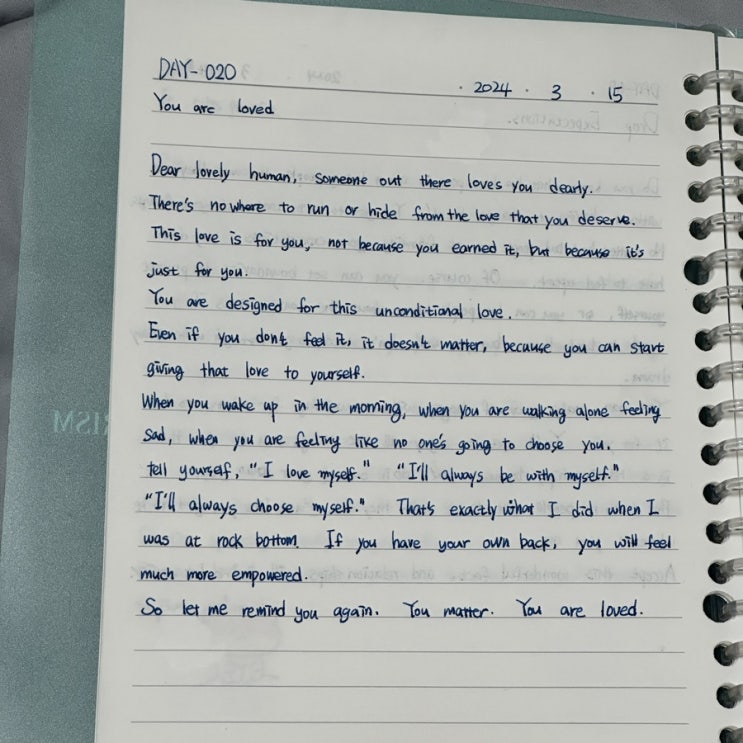 DAY-020
· 2024 · 3 · 15
You are loved
Dear lovely human, someone out there loves you dearly.
There's nowhere to run or hide from the love that you deserve.
This love is for you, not because you earned it, but because it's
just for you.
You are designed for this unconditional love.
Even if you don't feel it, it doesn't matter, because you can start
giving that love to yourself.
When you wake up in the morning, when you are walking alone feeling
sad, when you are feeling like no one's going to choose you.
tell yourself, "I love myself." "I'll always be with myself."
"I'll always choose myself." That's exactly what I did when I
was at rock bottom. If you have your own back, you will feel
much more empowered.
So let me remind you again. You matter. You are loved.